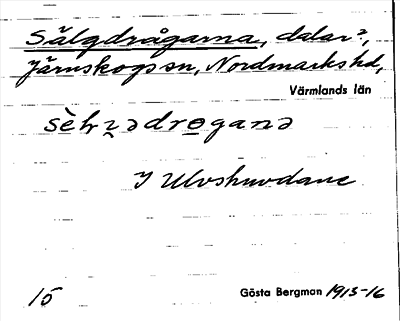 Sälgdrågarna, dalar?,
Järnskogs sn, Nordmarks hd,
Värmlands län
I Ulvshuvdane
15 Gösta Bergman 1915-16